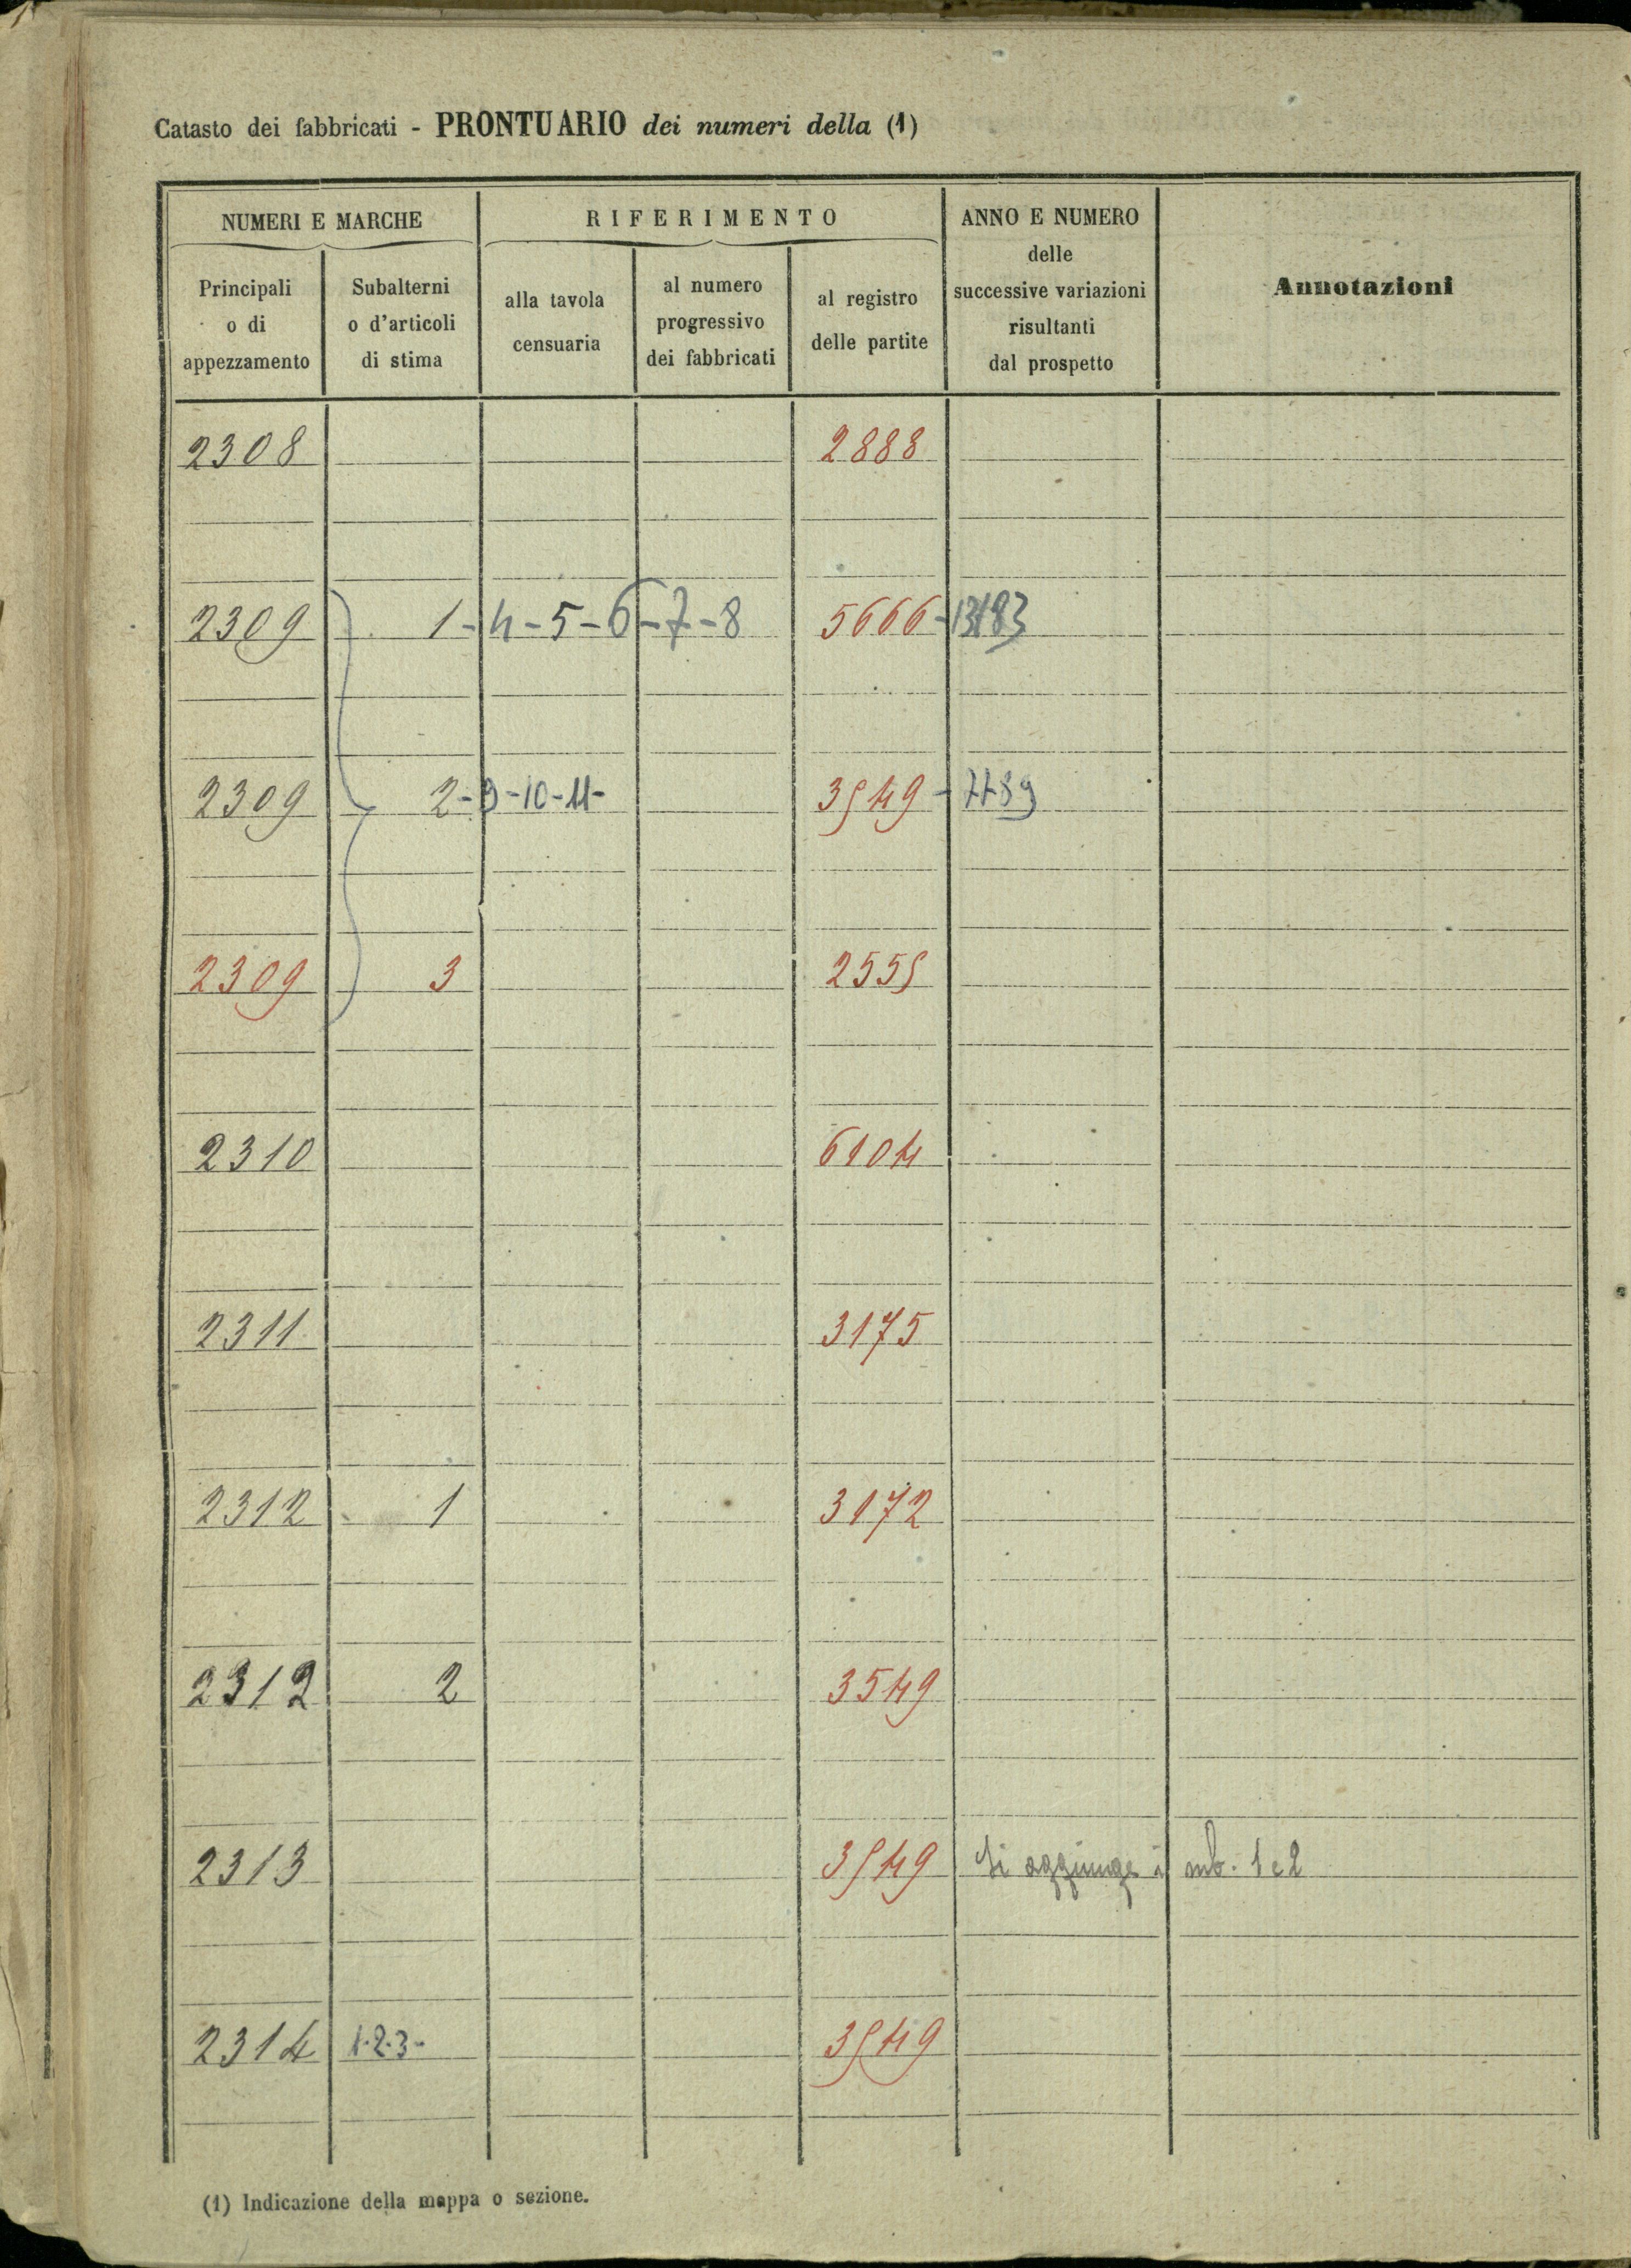 Catasto dei fabbricati - PRONTUARIO dei numeri della (1)
NUMERI E MARCHE
RIFERIMENTO
ANNO E NUMERO
delle
successive variazioni
risultanti
dal prospetto
Annotazioni
Principali
o di
appezzamento
Subalterni
o d'articoli
di stima
alla tavola
censuaria
al numero
progressivo
dei fabbricati
al registro
delle partite
2308 2888
2309 1-4-5-6-7-8 5666-
2309 2-9-10-11- 3549-
2309 3 2555
2310 6104
2311 3175
2312 1 3172
2312 2 3549
2313 3549 Si aggiunge i sub. 1 e 2
2314 1-2-3- 3549
(1) Indicazione della mappa o sezione.